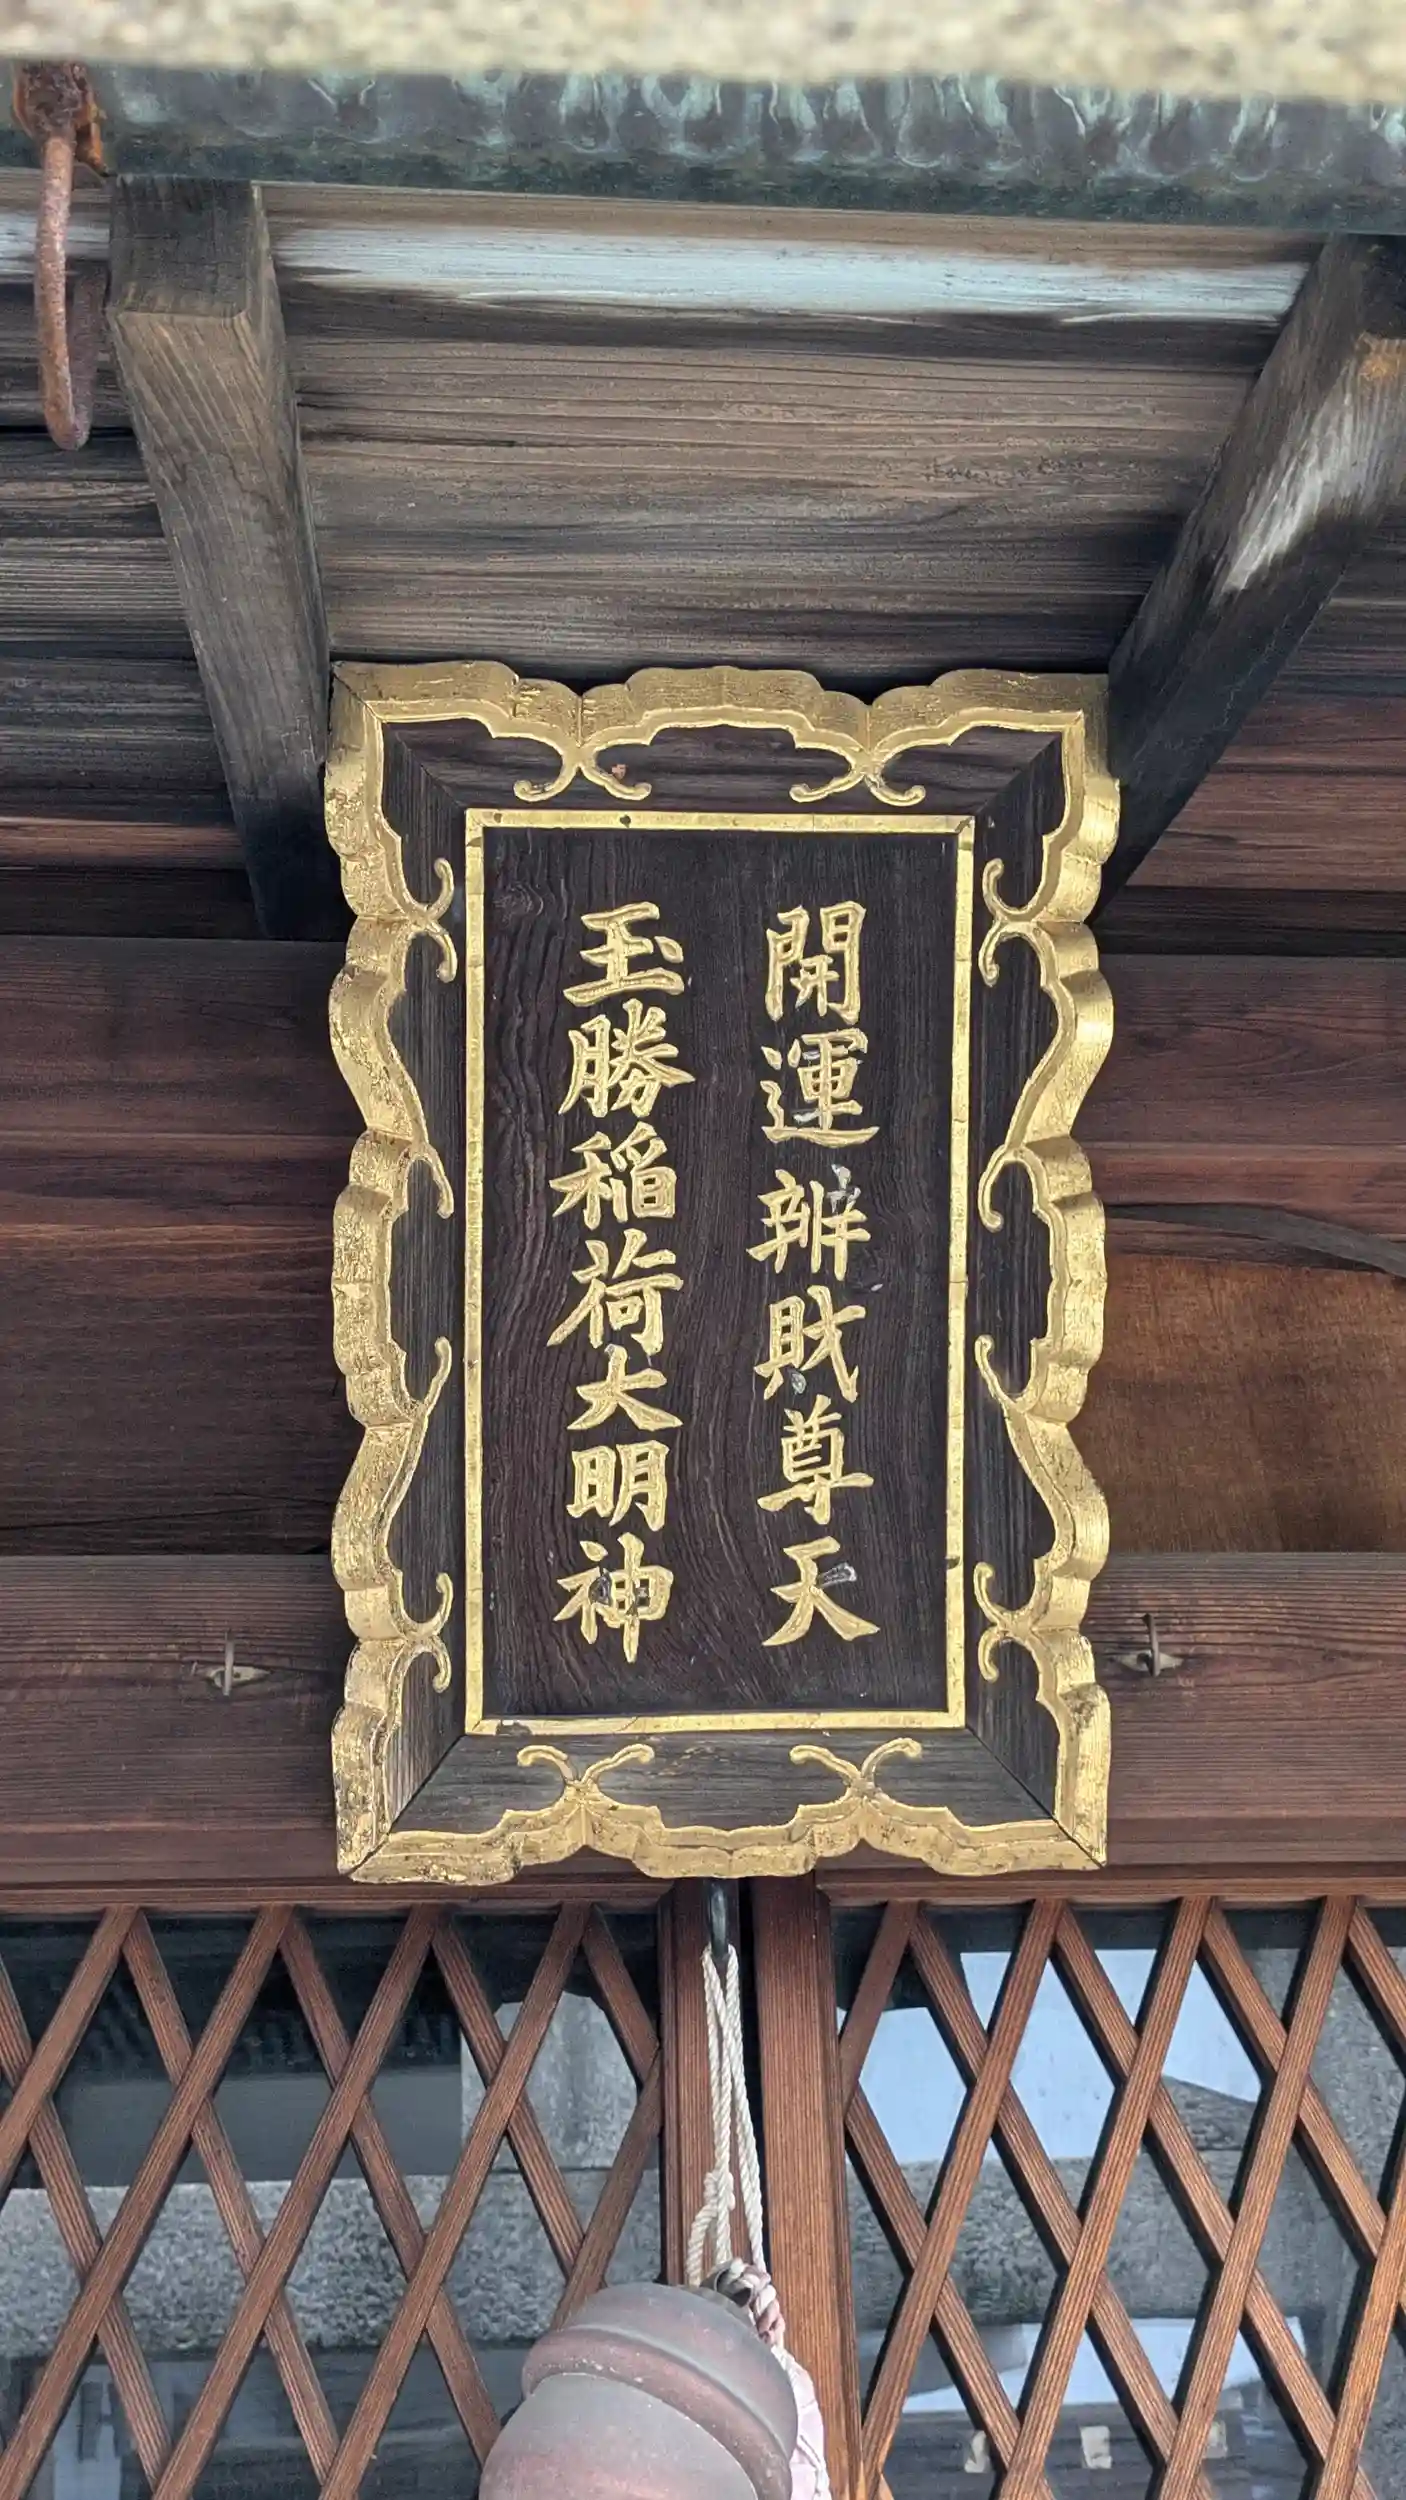 開運辨財尊天
玉勝稲荷大明神